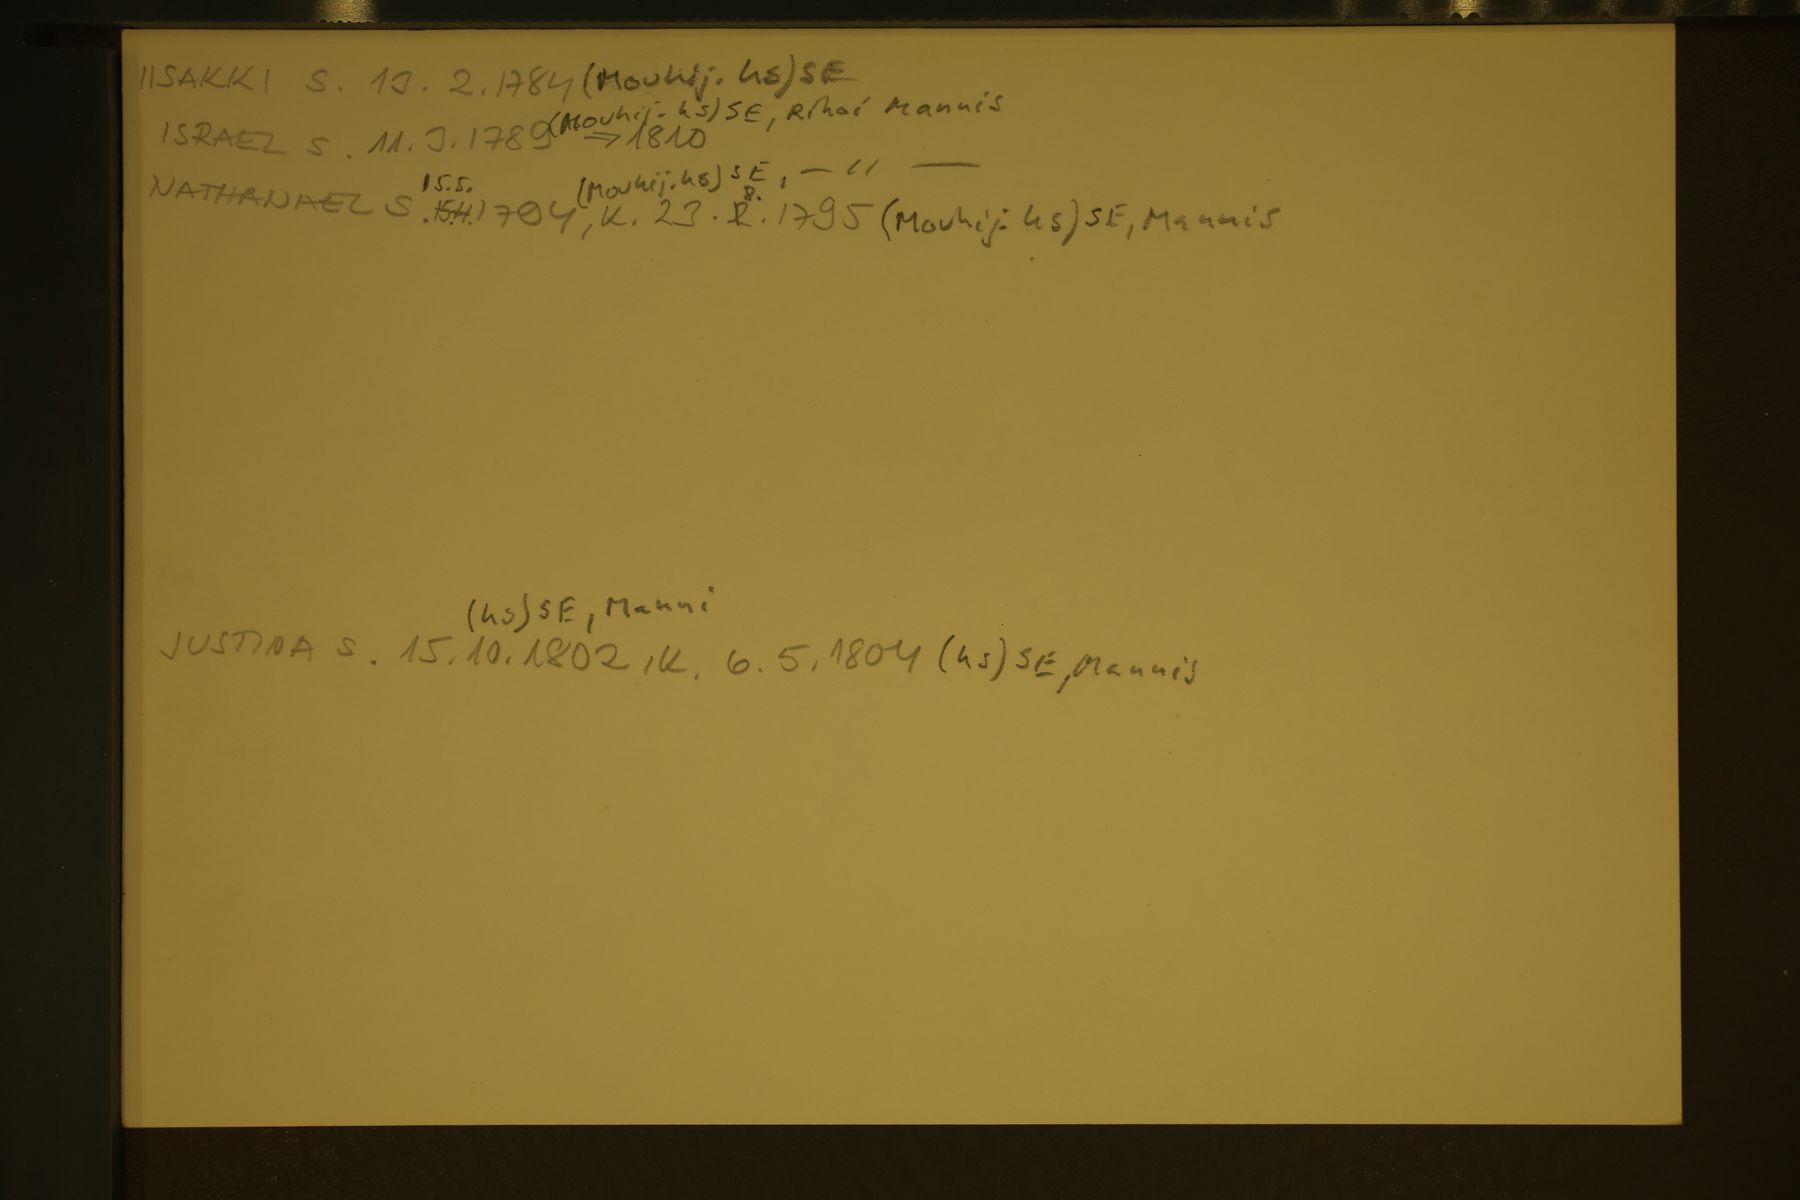 IISAKKI S. 13. 2. 1784 (Mouhij. hs) SE
(Mouhij. hs) SE, Rihoi Mannis
ISRAEL S. 11. 3. 1789 => 1810
15.5. (Mouhij. hs) SE, — " —
NATHANAEL S. 1794, K. 23. 8. 1795 (Mouhij. hs) SE, Mannis
(hs) SE, Manni
JUSTINA S. 15. 10. 1802, K. 6. 5. 1804 (hs) SE, Mannis